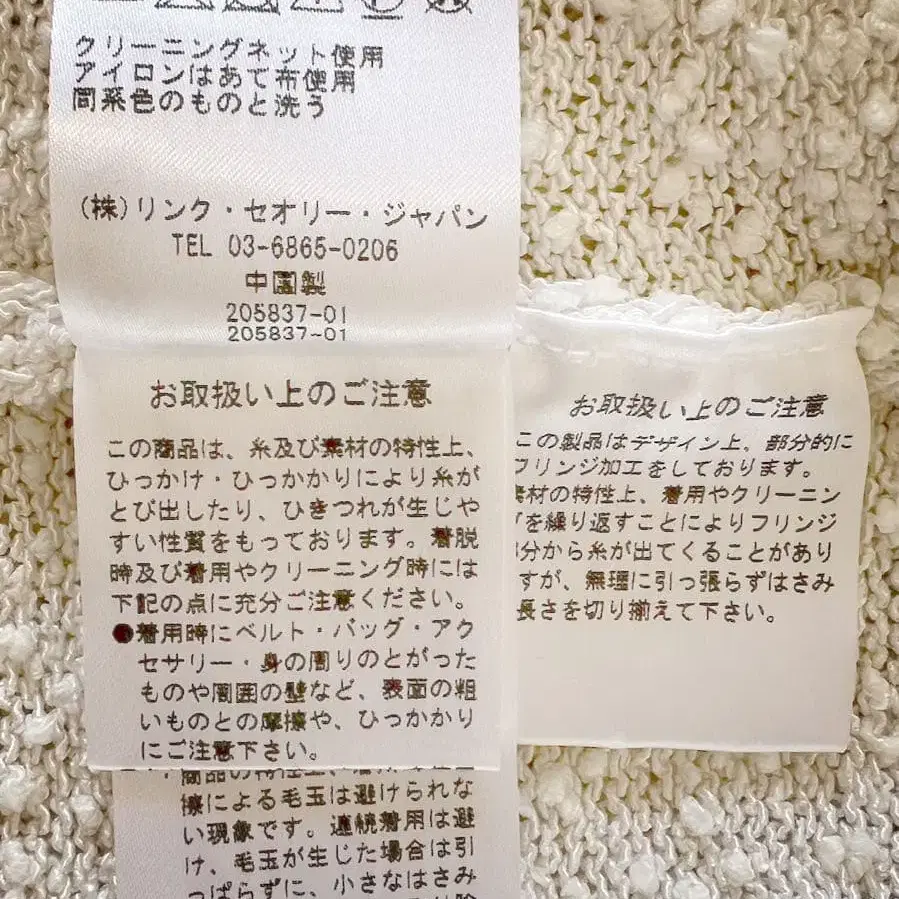 クリーニングネット使用
アイロンはあて布使用
同系色のものと洗う
(株)リンク・セオリー・ジャパン
TEL 03-6865-0206
中国製
205837-01
205837-01
お取扱い上のご注意
この商品は、糸及び素材の特性上、
ひっかけ・ひっかかりにより糸が
とび出したり、ひきつれが生じや
すい性質をもっております。着脱
時及び着用やクリーニング時には
下記の点に充分ご注意ください。
●着用時にベルト・バッグ・アク
セサリー・身の周りのとがった
ものや周囲の壁など、表面の粗
いものとの摩擦や、ひっかかり
にご注意下さい。
商品の特性上、
擦による毛玉は避けられな
い現象です。連続着用は避
け、毛玉が生じた場合は引
っぱらずに、小さなはさみ
お取扱い上のご注意
この製品はデザイン上、部分的に
フリンジ加工をしております。
素材の特性上、着用やクリーニン
グを繰り返すことによりフリンジ
部分から糸が出てくることがあり
ますが、無理に引っ張らずはさみ
長さを切り揃えて下さい。